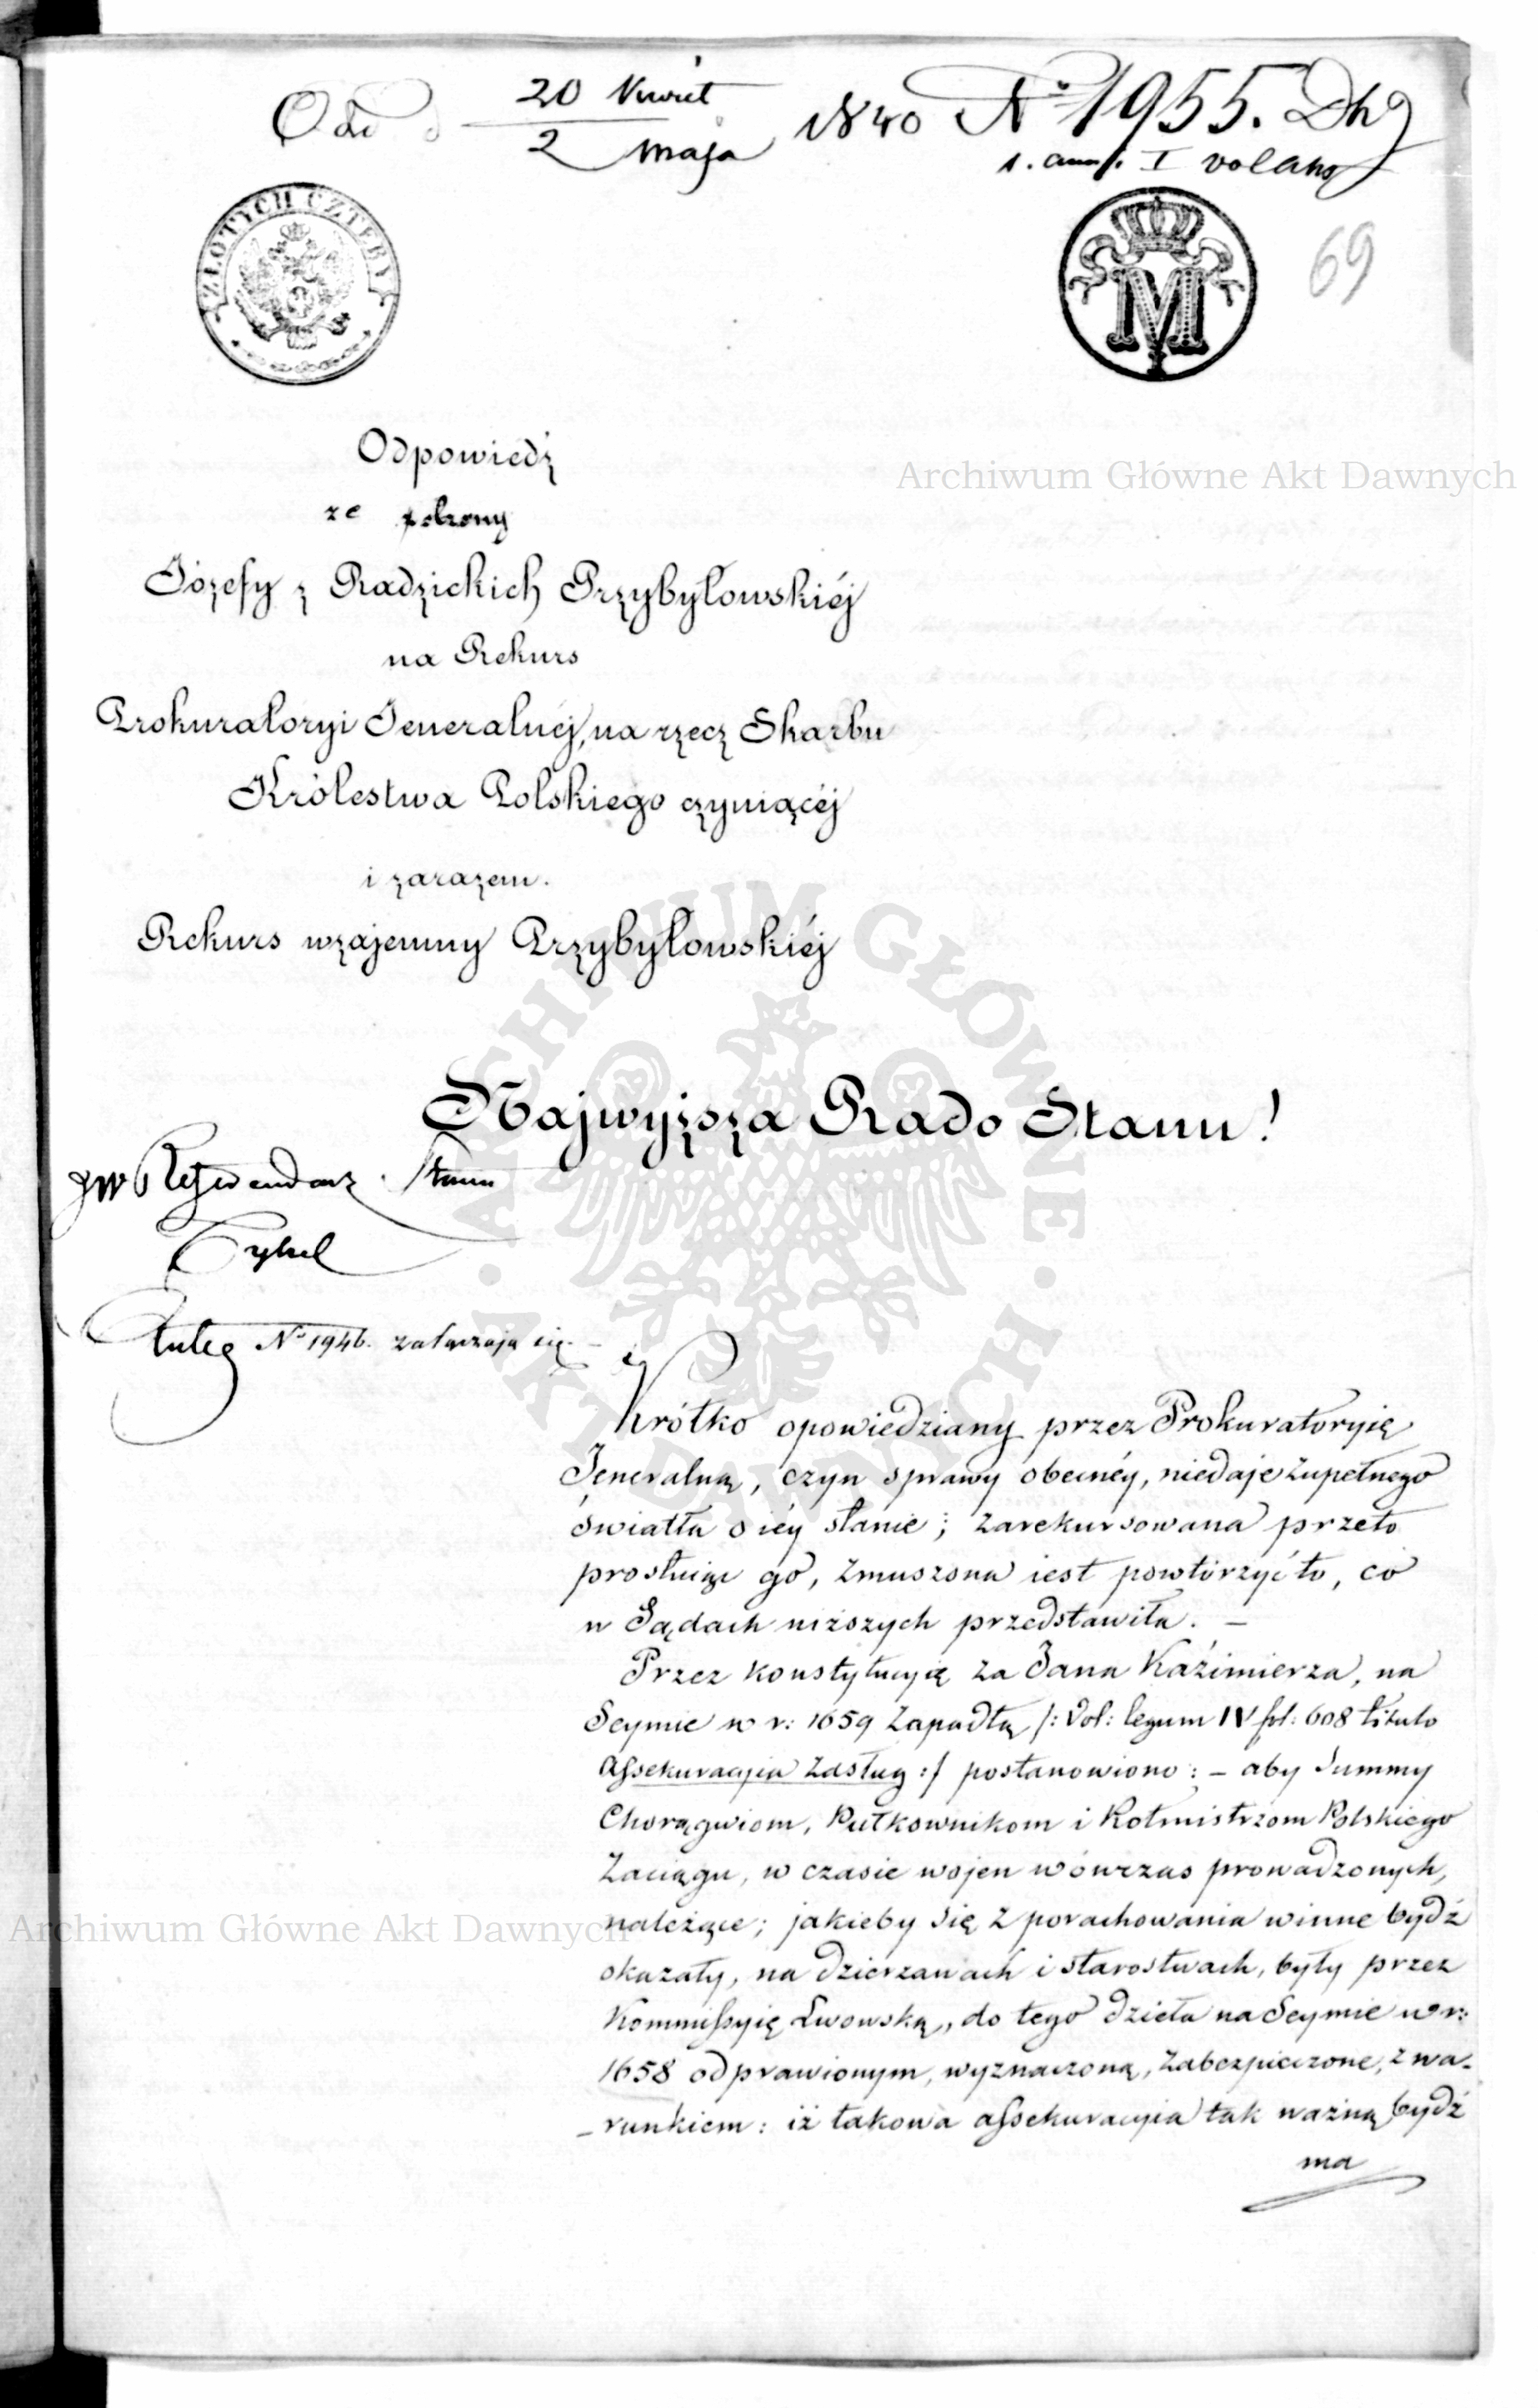 20 Kwiet
2 maja
1840 No 1955. Dhg
1. ann. I volans
ZŁOTYCH CZTERY
M
69
Odpowiedź
ze strony
Józefy z Radzickich Przybyłowskiéj
na Rekurs
Prokuratoryi Jeneralnéj, na rzecz Skarbu
Królestwa Polskiego czyniącéj
i zarazem.
Rekurs wzajemny Przybyłowskiéj
Archiwum Główne Akt Dawnych
ARCHIWUM GŁÓWNE AKT DAWNYCH
Najwyższa Rado Stanu!
JW Referendarz Stanu
No 1946. załączają się. –
Krótko opowiedziany przez Prokuratoryię
Jeneralną, czyn sprawy obecnéy, niedaje zupełnego
światła o iéy stanie; zarekursowana przeto
prostuiąc go, zmuszona iest powtórzyć to, co
w Sądach niższych przedstawiła. –
Przez konstytucyię za Jana Kaźimierza, na
Seymie w r: 1659 zapadłą /: Vol: legum IV fol: 608 titulo
Assekuracyia zasług :/ postanowiono: – aby summy
Chorągwiom, Pułkownikom i Rotmistrzom Polskiego
Zaciągu, w czasie wojen wówczas prowadzonych,
należące; jakieby się z porachowania winne bydź
okazały, na dzierzawach i starostwach, były przez
Kommissyię Lwowską, do tego dzieła na Seymie w r:
1658 odprawionym, wyznaczoną, zabezpieczone, z wa-
-runkiem: iż takowa assekuracyia tak ważną bydź
ma
Archiwum Główne Akt Dawnych